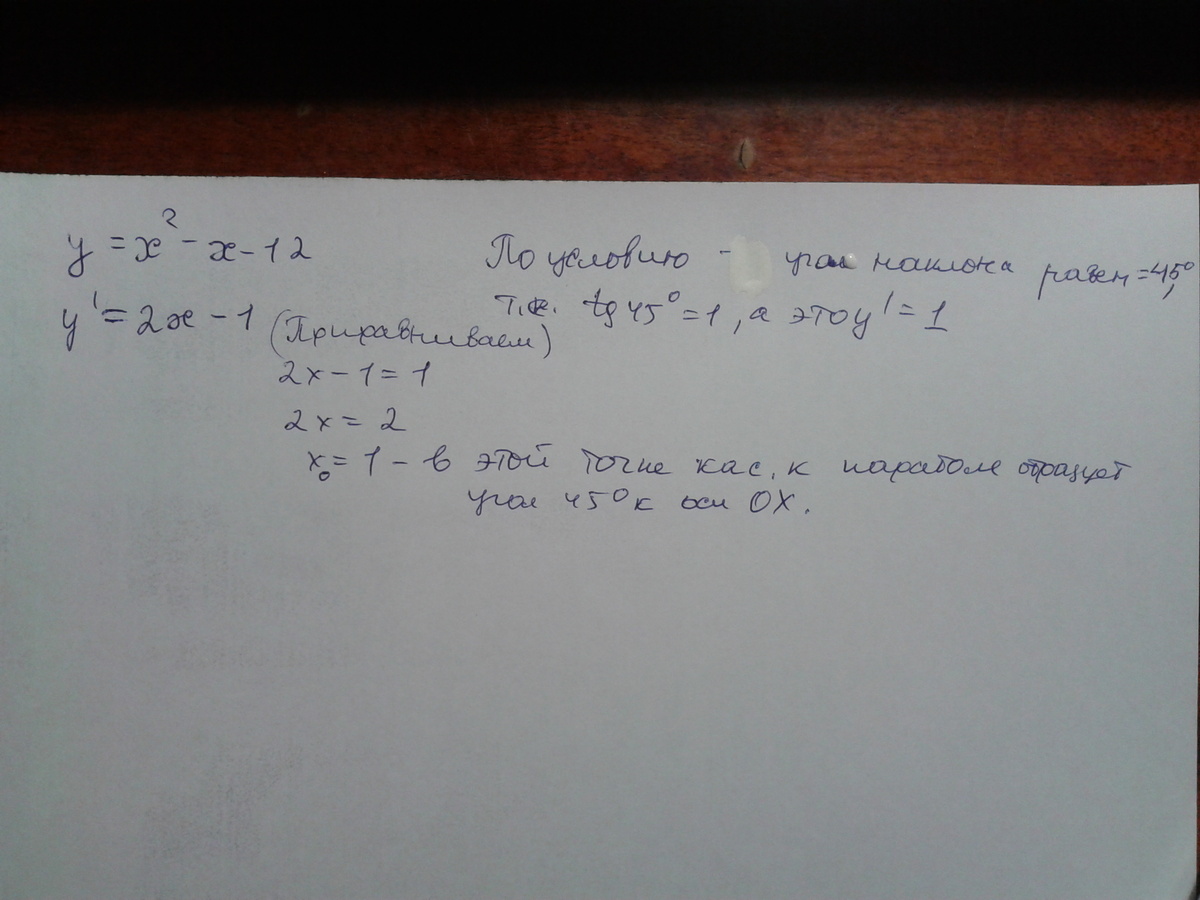 y = x² - x - 12
По условию - угол наклона равен = 45°,
y' = 2x - 1 (Приравниваем)
т.к. tg 45° = 1, а это y' = 1
2x - 1 = 1
2x = 2
x₀ = 1 - в этой точке кас. к параболе образует
угол 45° к оси OX.